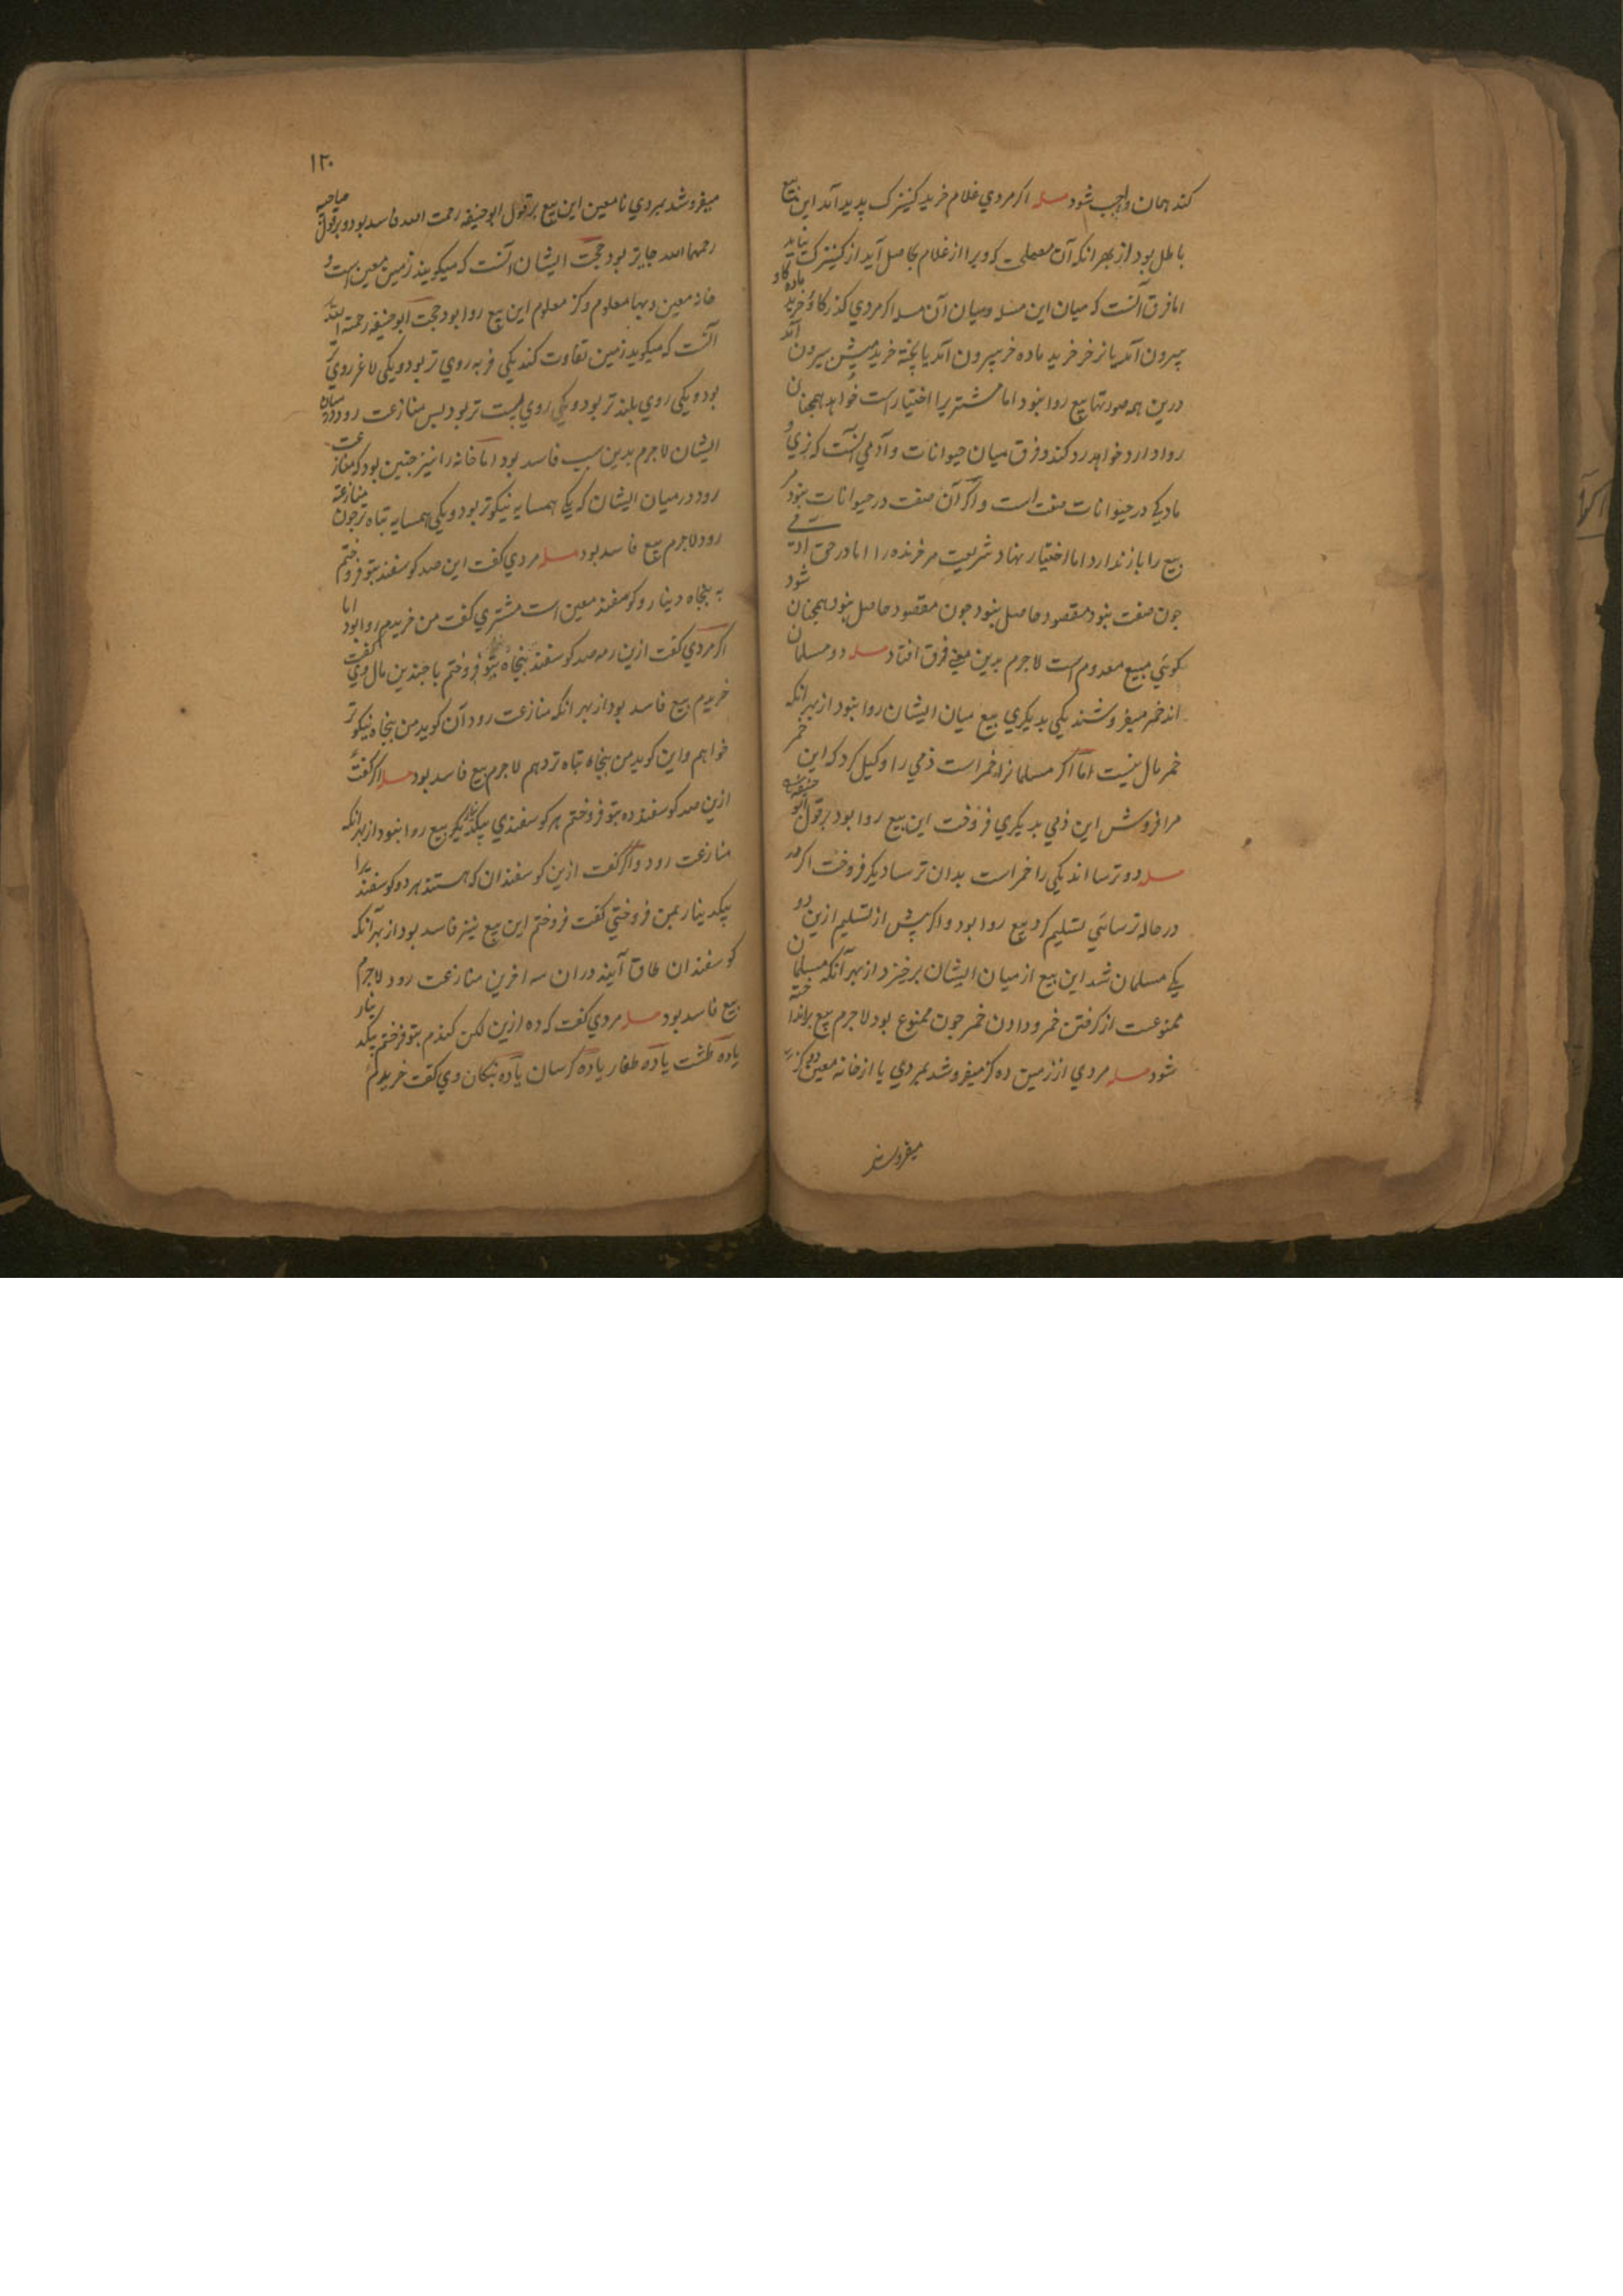 کند همان واجب شود مسله اکر مردي غلام خرید کنیزک پدید آمد این بیع
باطل بود از بهر انکه آن معملي که ویرا از غلام حاصل آید از کنیزک نیاید
اما فرق آنست که میان این مسله ومیان آن مسله اکر مردي کذر کاؤ خرید ماده کاو
بیرون آمد یا نرخر خرید ماده خر بیرون آمد یا پخته خرید میش بیرون آمد
درین همه صورتها بیع روا نبود اما مشتریرا اختیار است خواهد همجنان
روا دارد خواهد رد کند وفرق میان حیوانات وآدمي آنست که نري و
مادیکي در حیوانات صفت است واکر آن صفت در حیوانات نبود
بیع را باز ندارد اما اختیار نهاد شریعت مر خرنده را اما در حق آدمي
جون صفت نبود مقصود حاصل نبود جون مقصود حاصل نبود همجنان شود
کوئي مبیع معدوم است لاجرم بدین معني فرق افتاد مسله دو مسلمان
اند خمر میفروشند یکي بدیکري بیع میان ایشان روا نبود از بهر انکه
خمر مال نیست اما اکر مسلمانرا خمر است ذمي را وکیل کرد که این خمر
مرا فروش این ذمي بدیکري فروخت این بیع روا بود بر قول ابو حنیفه
مسله دو ترسا اند یکي را خمر است بدان ترسا دیکر فروخت اکر
در حاله ترسائي تسلیم کرد بیع روا بود واکر پیش از تسلیم ازین دو
یکي مسلمان شد این بیع از میان ایشان برخیزد از بهر آنکه مسلمان
ممنوعست از کرفتن خمر ودادن خمر جون ممنوع بود لاجرم بیع برانداخته
شود مسله مردي از زمین ده کز میفروشد بمردي یا از خانه معین
میفروشد
١٢٠
میفروشد بمردي نامعین این بیع بر قول ابوحنیفه رحمت الله فاسد بود وبر قول صاحبیه
رحمهما الله جایز بود حجت ایشان آنست که میکویند زمین معین است و
خانه معین وبها معلوم وکز معلوم این بیع روا بود حجت ابوحنیفه رحمة الله
آنست که میکوید زمین تفاوت کند یکي فربه روي تر بود ویکي لاغر روي
بود ویکي روي بلند تر بود ویکي روي پست تر بود بس منازعت رود در میان
ایشان لاجرم بدین سبب فاسد بود اما خانه را نیز جنین بود که منازعت
رود در میان ایشان که یکي همسایه نیکوتر بود ویکي همسایه تباه تر جون منازعة
رود لاجرم بیع فاسد بود مسله مردي کفت این صد کوسفند بتو فروختم
به پنجاه دینار وکوسفند معین است مشتري کفت من خریدم روا بود اما
اکر مردي کفت ازین رمه صد کوسفند پنجاه بتو فروختم با جندین مال وي کفت
خریدم بیع فاسد بود از بهر انکه منازعت رود آن کوید من پنجاه نیکوتر
خواهم واین کوید من پنجاه تباه تر دهم لاجرم بیع فاسد بود مسله اکر کفت
ازین صد کوسفند ده بتو فروختم هر کوسفندي بیکدینار بیع روا نبود از بهر انکه
منازعت رود واکر کفت ازین کوسفندان که هستند هر دو کوسفند را
بیکدینار بمن فروختي کفت فروختم این بیع نیز فاسد بود از بهر آنکه
کوسفندان طاق آیند در ان سه اخرین منازعت رود لاجرم
بیع فاسد بود مسله مردي کفت که ده ازین لکن کندم بتو فرختم بیکدینار
یا ده طشت یا ده طغار یا ده کرسان یا ده بنکان وي کفت خریدم